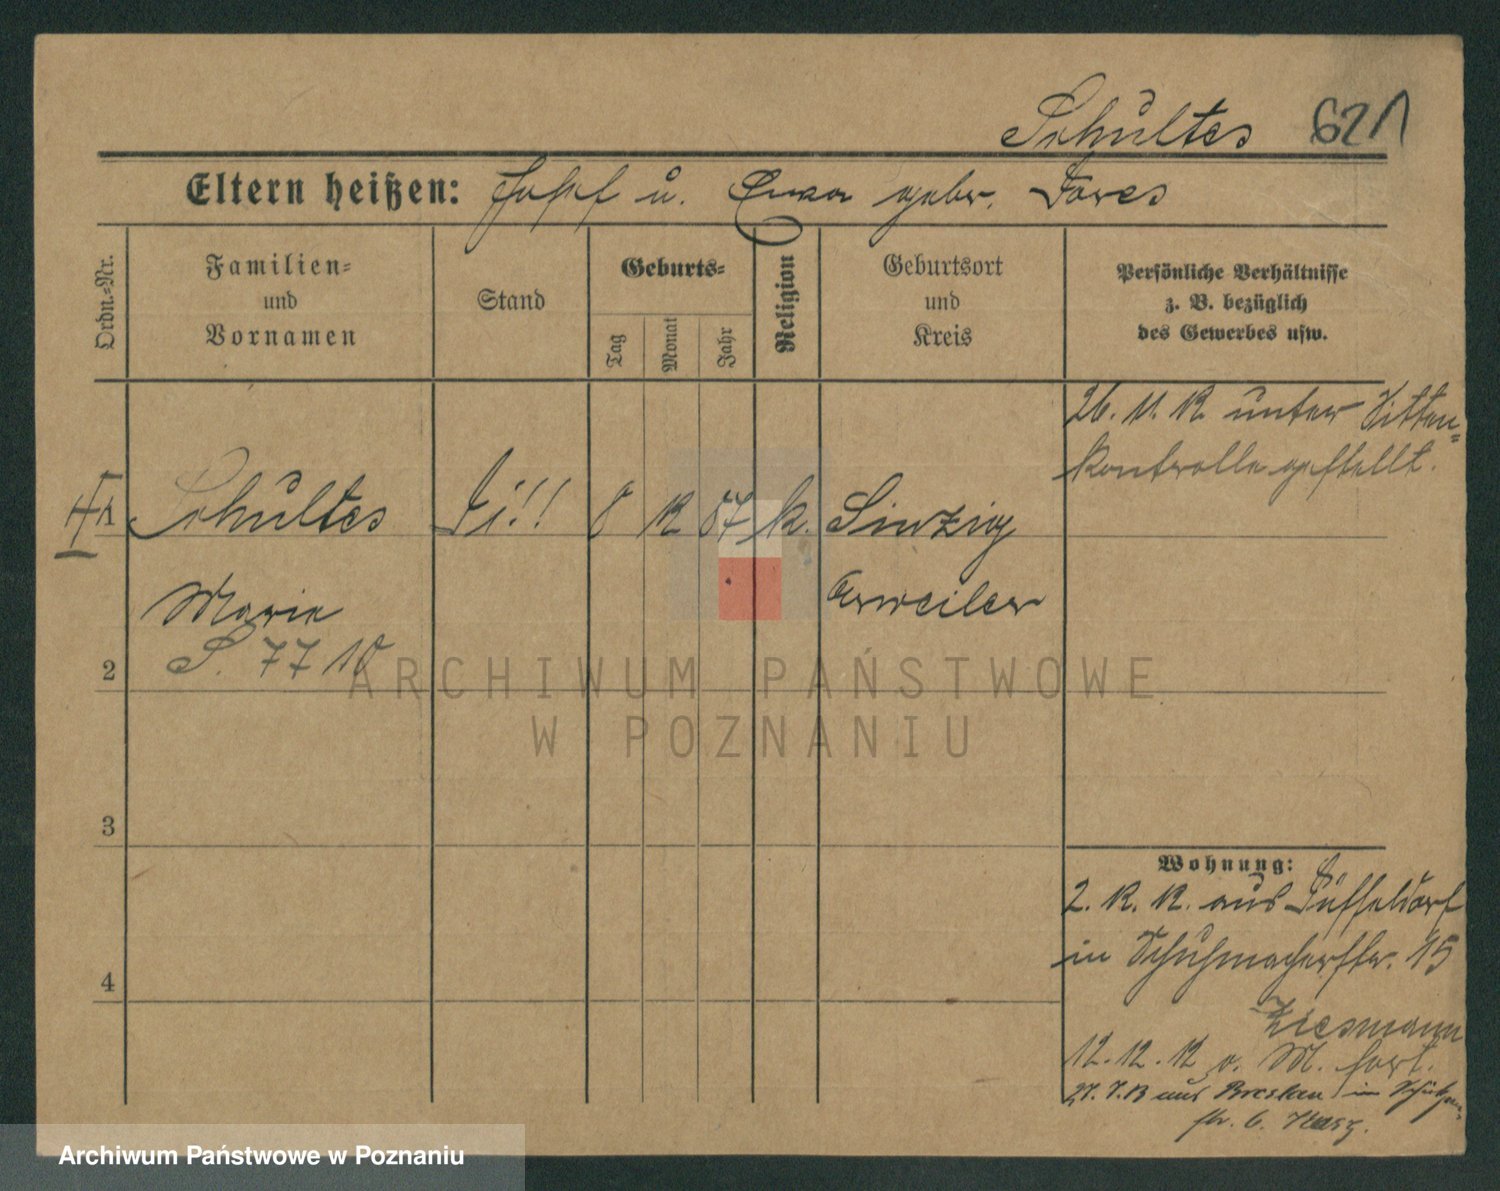 Schultes 621
Eltern heißen: Josef u. Anna gebr. Fares
Ordn.-Nr.
Familien-
und
Vornamen
Stand
Geburts-
Tag
Monat
Jahr
Religion
Geburtsort
und
Kreis
Persönliche Verhältnisse
z. B. bezüglich
des Gewerbes usw.
26. 11. 12. unter Sitten-
kontrolle gestellt.
1 Schultes 8 12 87 k. Sinzig
Marie Arweiler
S. 7710
2
3
4
Wohnung:
2. 12. 12. aus Düsseldorf
in Schuhmacherstr. 15
Ziesmann
12. 12. 12 o. M. fort.
27. 7. 13 aus Breslau in Schützen-
str. 6.
ARCHIWUM PAŃSTWOWE
W POZNANIU
Archiwum Państwowe w Poznaniu